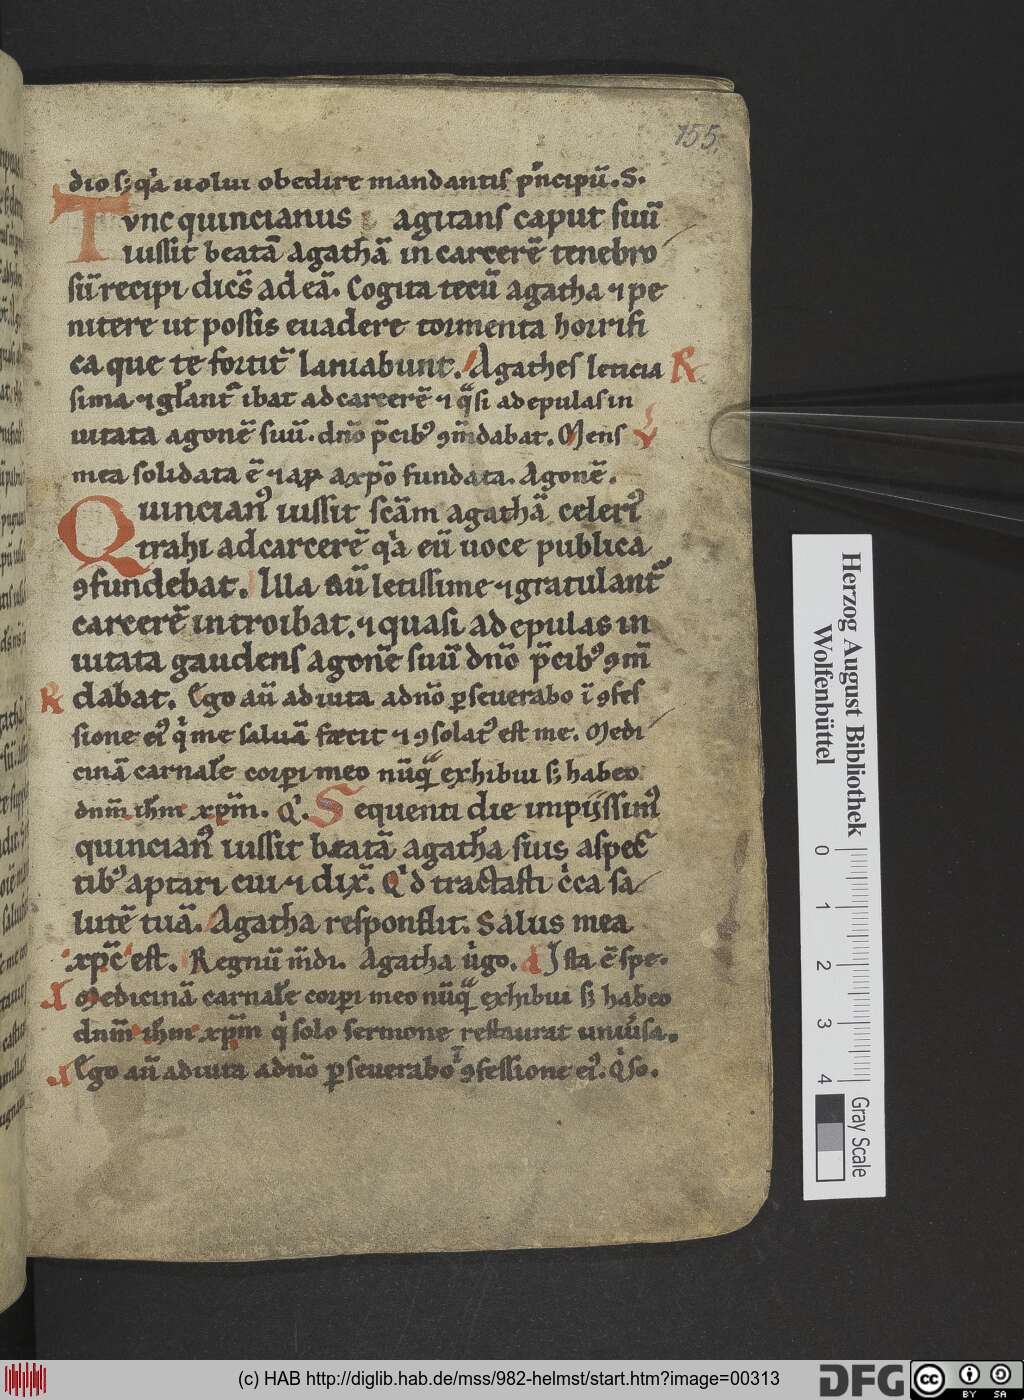 155.
dio s; q̇a uolui obedire mandantis pͥncipū. S.
Tvnc quincianus agitans caput suū
iussit beatā agathā in carcerē tenebro
sū recipi dicēs ad eā. Cogita tecū agatha ⁊ pe
nitere ut possis euadere tormenta horrifi
ca que te fortit̄ laniabunt. Agathes leticia R
sima ⁊ gl̄ant̄ ibat ad carcerē ⁊ qͣsi ad epulas in
uitata agonē suū. dn̄o p̄cibꝰ ꝯm̄dabat. Mens V
mea solidata ē ⁊ a xp̄o fundata. Agonē.
Quincianꝰ iussit sc̄am agathā celeriꝰ
trahi ad carcerē q̇a eū uoce publica
ꝯfundebat. Illa aū letissime ⁊ gratulant̄
carcerē introibat. ⁊ quasi ad epulas in
uitata gaudens agonē suū dn̄o p̄cibꝰ ꝯm̄
R dabat. Ego aū adiuta a dn̄o ꝑseuerabo ī ꝯfes
sione eiꝰ qͥ me saluā fecit ⁊ ꝯsolatꝰ est me. Medi
cinā carnalē corpi meo nūqͣ exhibui s; habeo
dnm̄ ihm̄ xpm̄. Q. Sequenti die impijssimꝰ
quincianꝰ iussit beatā agathā suis aspec
tibꝰ aptari cui ⁊ dix̄. Qͥd tractasti c̄ca sa
lutē tuā. Agatha respondit. Salus mea
xp̄c est. Regnū m̄di. Agatha ūgo. Ista ē spe.
Medicinā carnalē corpi meo nūqͣ exhibui s; habeo
dnm̄ ihm̄ xpm̄ qͥ solo sermone restaurat uniūsa.
Ego aū adiuta a dn̄o ꝑseuerabo ī ꝯfessione eiꝰ. Qͥ so.
Herzog August Bibliothek
Wolfenbüttel
0 1 2 3 4 Gray Scale
(c) HAB http://diglib.hab.de/mss/982-helmst/start.htm?image=00313
DFG cc BY SA